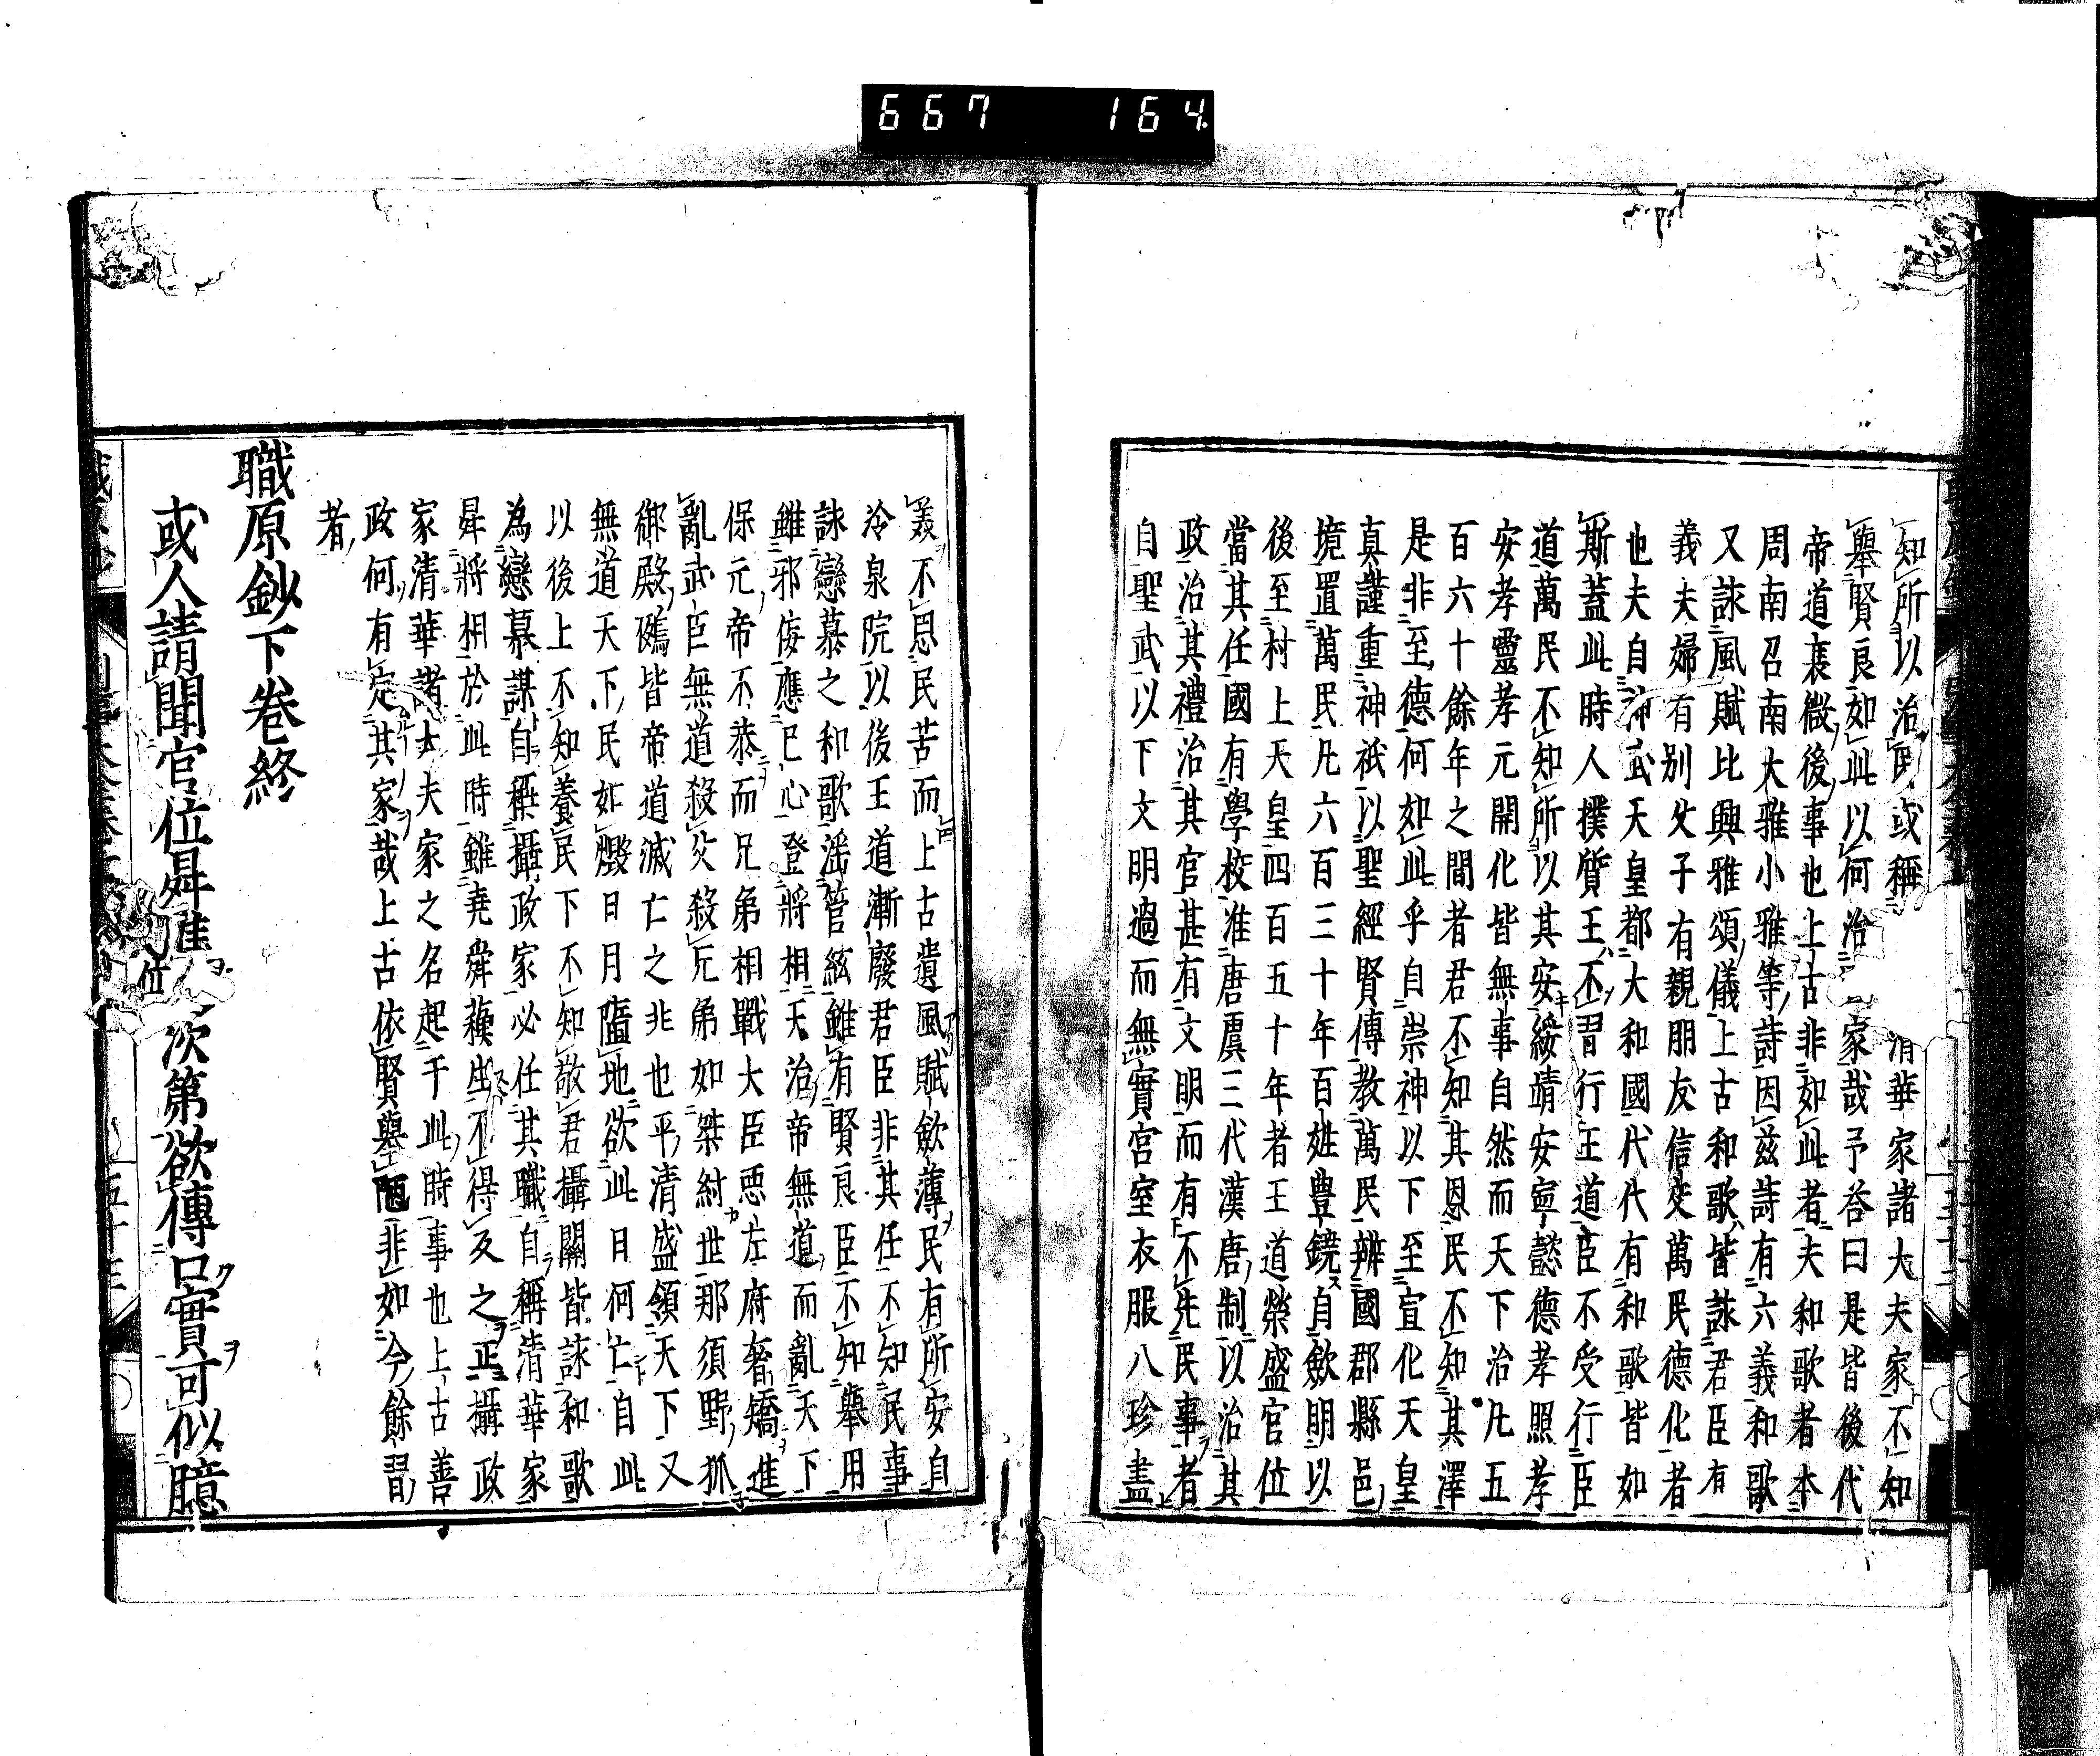 667 164
知所以治民或稱清華家諸大夫家不知
舉賢良如此以何治家哉予答曰是皆後代
帝道衰微後事也上古非如此者夫和歌者本
周南召南大雅小雅等詩因茲詩有六義和歌
又詠風賦比興雅頌儀上古和歌皆詠君臣有
義夫婦有別父子有親朋友信交萬民德化者
也夫自神武天皇都大和國代代有和歌皆如
斯蓋此時人撲質王不習行王道臣不受行臣
道萬民不知所以其安綏靖安寧懿德孝照孝
安孝靈孝元開化皆無事自然而天下治凡五
百六十餘年之間者君不知其恩民不知其澤
是非至德何如此乎自崇神以下至宣化天皇
真謹重神祇以聖經賢傳教萬民辨國郡縣邑
境置萬民凡六百三十年百姓豊鏡自斂明以
後至村上天皇四百五十年者王道榮盛官位
當其任國有學校准唐虞三代漢唐制以治其
政治其禮治其官甚有文明而有不先民事者
自聖武以下文明過而無實宮室衣服八珍盡
義不恩民苦而上古遺風賦斂薄民有所安自
冷泉院以後王道漸廢君臣非其任不知民事
詠戀慕之和歌滛管絃雖有賢良臣不知舉用
雖邪侫應已心登將相夭治帝無道而亂天下
保元帝不恭而兄弟相戰大臣惡左府奢矯進
亂武臣無道殺父殺兄弟如桀紂世那須野狐
御殿鵺皆帝道滅亡之非也平清盛領天下又
無道天下民如燬日月隨地欲此日何亡自此
以後上不知養民下不知敬君攝關皆詠和歌
為戀慕謀自稱攝政家必任其職自稱清華家
昇將相於此時雖堯舜蘓生不得反之正攝政
家清華諸大夫家之名起于此時事也上古善
政何有定其家哉上古依賢舉陋非如今餘習
者
職原鈔下卷終
或人請聞官位昇進次第欲傳口實可似臆